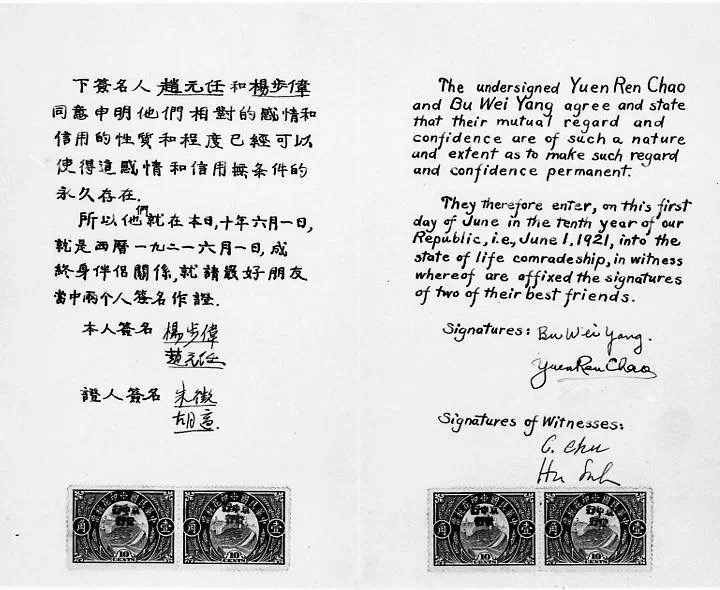 下簽名人 趙元任 和 楊步偉
同意申明他們相對的感情和
信用的性質和程度已經可以
使得這感情和信用無條件的
永久存在.
所以他們就在本日,十年六月一日,
就是西曆一九二一六月一日,成
終身伴侶關係,就請最好朋友
當中兩个人簽名作證.
本人簽名 楊步偉
趙元任
證人簽名 朱徵
胡適
The undersigned Yuen Ren Chao
and Bu Wei Yang agree and state
that their mutual regard and
confidence are of such a nature
and extent as to make such regard
and confidence permanent.
They therefore enter, on this first
day of June in the tenth year of our
Republic, i.e., June 1, 1921, into the
state of life comradeship, in witness
whereof are affixed the signatures
of two of their best friends.
Signatures: Bu Wei Yang.
Yuen Ren Chao
Signatures of Witnesses:
C. Chu
Hu Suh
角 壹
10
CENTS
角 壹
10
CENTS
角 壹
10
CENTS
角 壹
10
CENTS